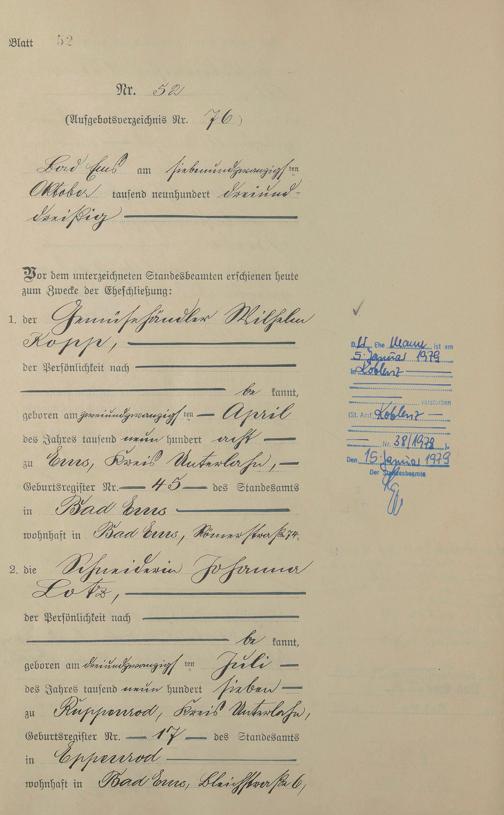 Blatt 52
Nr. 52
(Aufgebotsverzeichnis Nr. 76)
Bad Ems am siebenundzwanzigsten
Oktober tausend neunhundert dreiund-
dreißig
Vor dem unterzeichneten Standesbeamten erschienen heute
zum Zwecke der Eheschließung:
1. der Gemüsehändler Wilhelm
Kopp,
der Persönlichkeit nach
be kannt,
geboren am zweiundzwanzigsten April
des Jahres tausend neun hundert acht
zu Ems, Kreis Unterlahn,
Geburtsregister Nr. 45 des Standesamts
in Bad Ems
wohnhaft in Bad Ems, Römerstraße 74.
2. die Schneiderin Johanna
Lotz,
der Persönlichkeit nach
be kannt,
geboren am dreiundzwanzigsten Juli
des Jahres tausend neun hundert sieben
zu Ruppenrod, Kreis Unterlahn,
Geburtsregister Nr. 17 des Standesamts
in Eppenrod
wohnhaft in Bad Ems, Bleichstraße 6,
Ehemann ist am
5. Januar 1979
in Koblenz
verstorben
(St. Amt Koblenz
Nr. 38/1979).
Den 15. Januar 1979
Der Standesbeamte